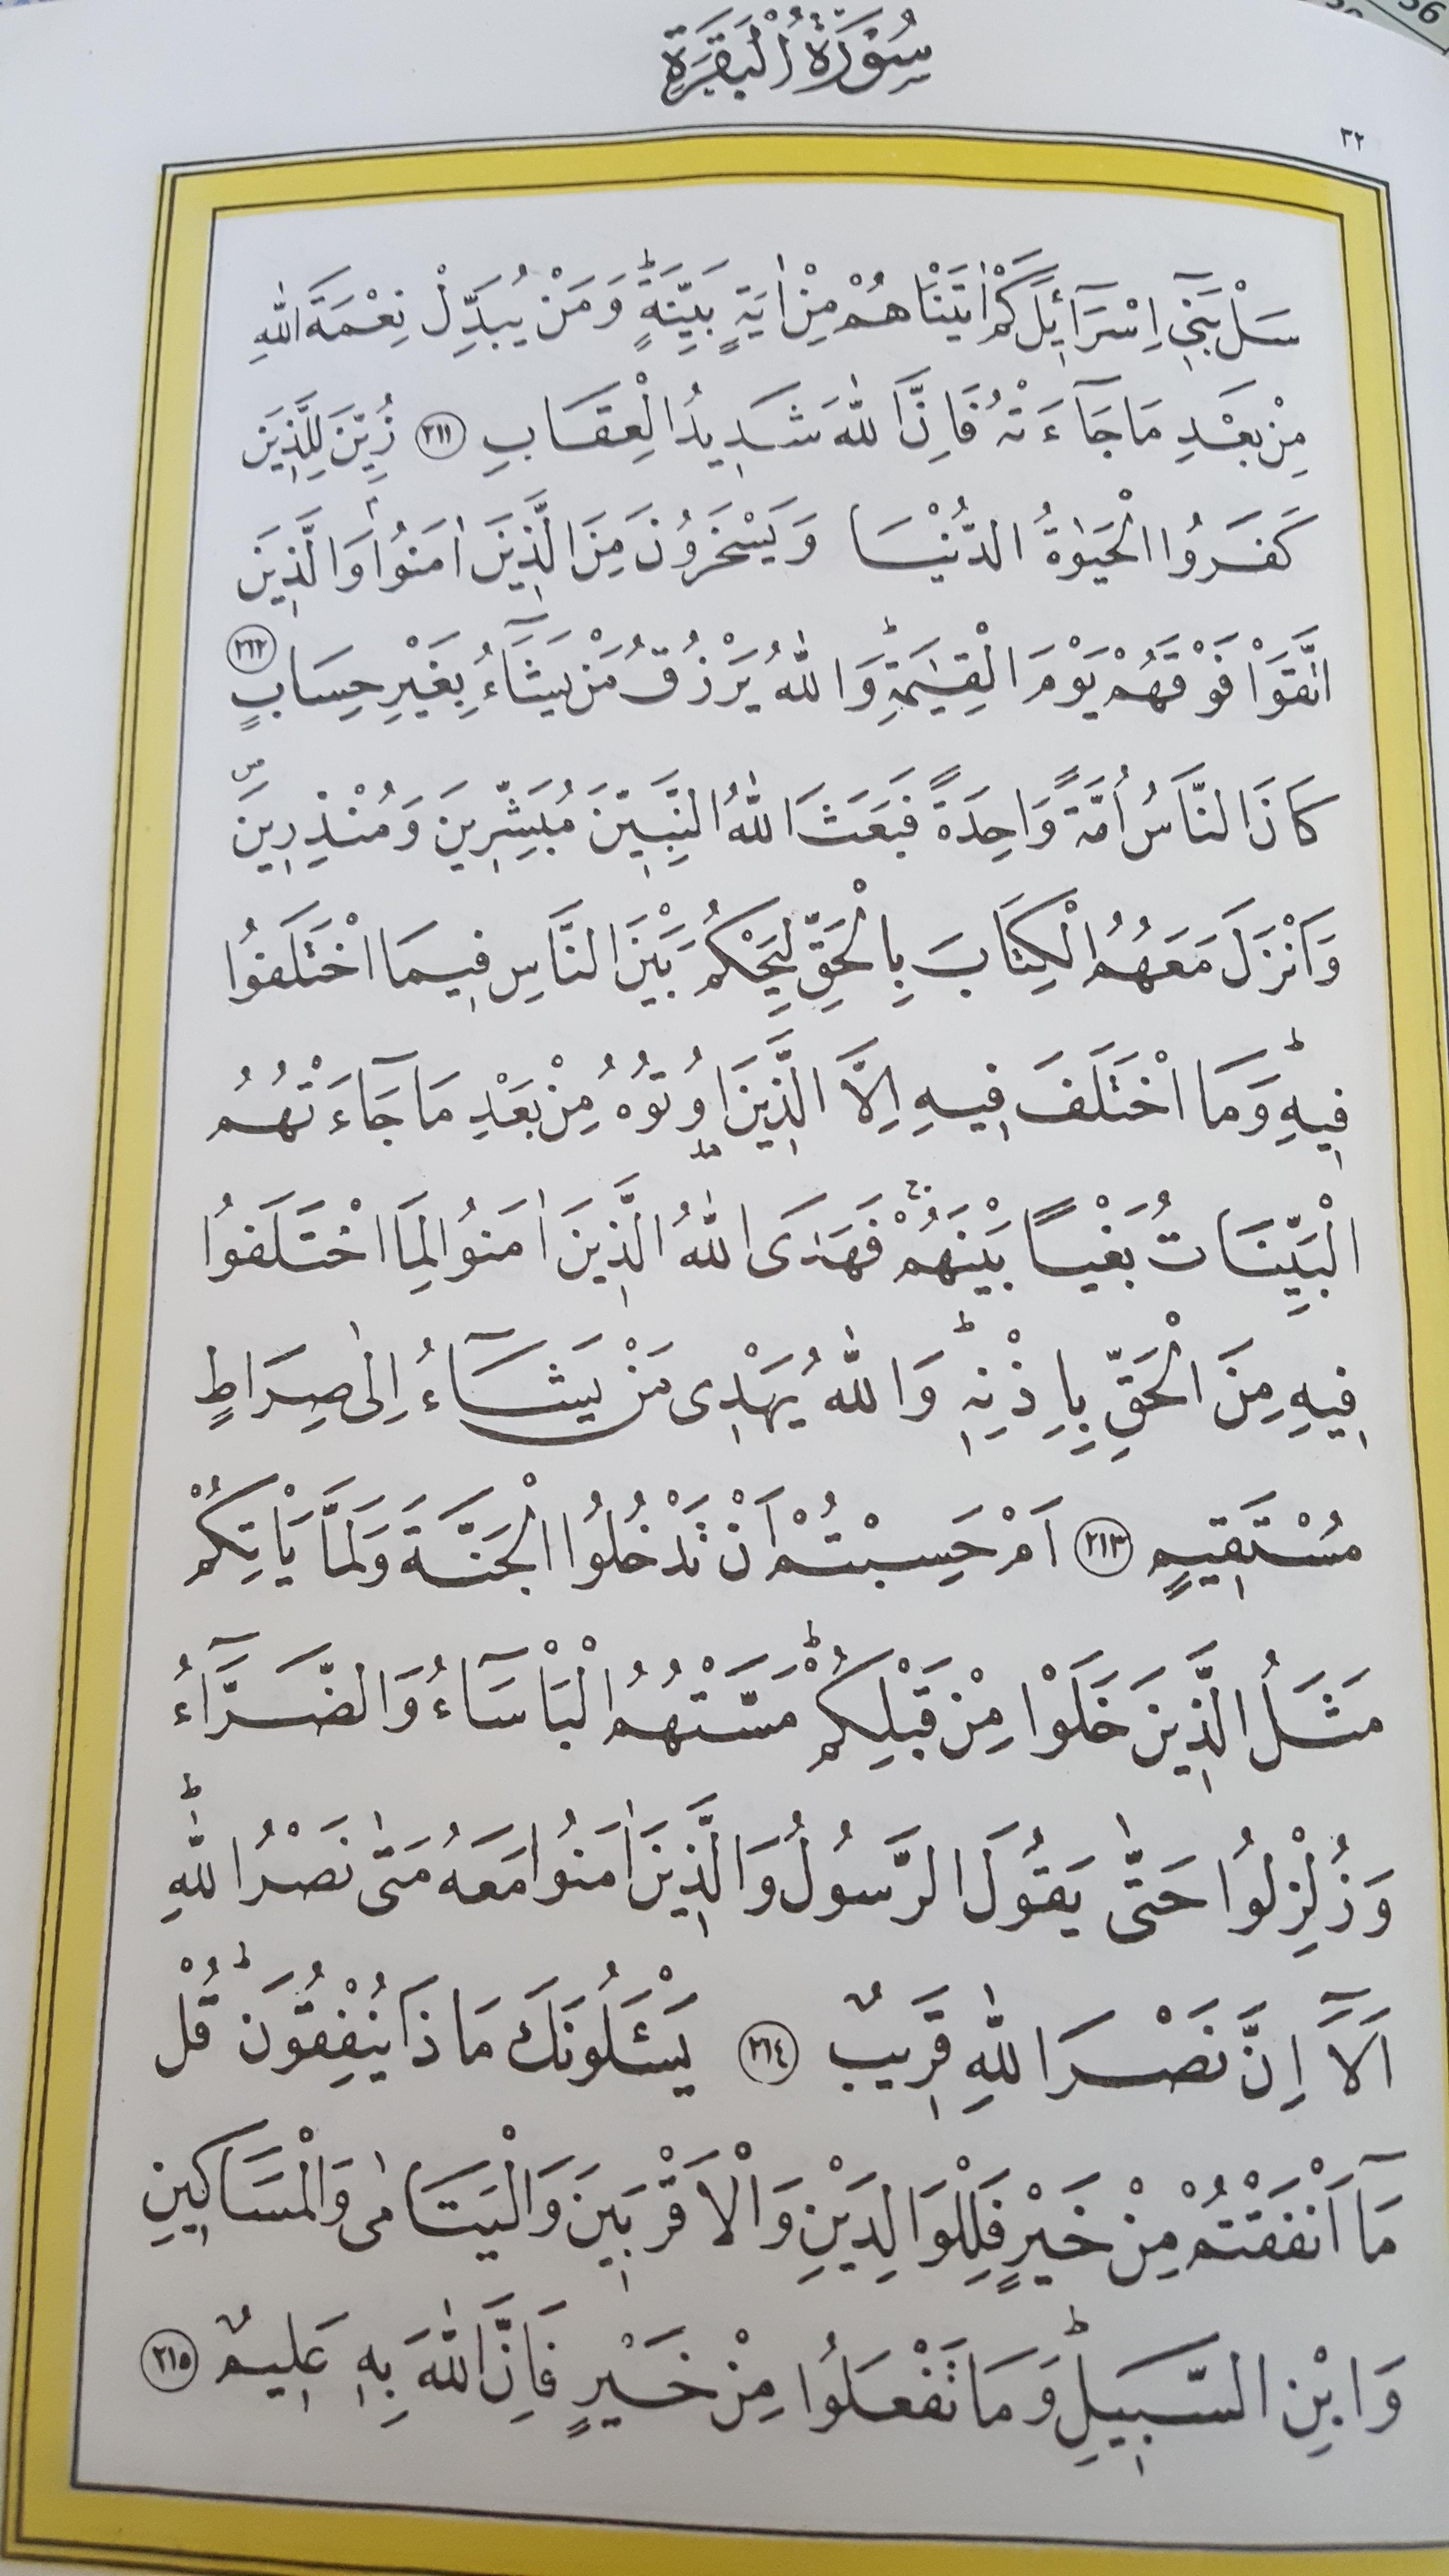 سُورَةُ الْبَقَرَةِ
٣٢
سَلْ بَنٖٓي اِسْرَٓائٖلَ كَمْ اٰتَيْنَاهُمْ مِنْ اٰيَةٍ بَيِّنَةٍؕ وَمَنْ يُبَدِّلْ نِعْمَةَ اللّٰهِ
مِنْ بَعْدِ مَا جَٓاءَتْهُ فَاِنَّ اللّٰهَ شَدٖيدُ الْعِقَابِ ﴿٢١١﴾ زُيِّنَ لِلَّذٖينَ
كَفَرُوا الْحَيٰوةُ الدُّنْيَا وَيَسْخَرُونَ مِنَ الَّذٖينَ اٰمَنُواۢ وَالَّذٖينَ
اتَّقَوْا فَوْقَهُمْ يَوْمَ الْقِيٰمَةِؕ وَاللّٰهُ يَرْزُقُ مَنْ يَشَٓاءُ بِغَيْرِ حِسَابٍ ﴿٢١٢﴾
كَانَ النَّاسُ اُمَّةً وَاحِدَةً فَبَعَثَ اللّٰهُ النَّبِيّٖنَ مُبَشِّرٖينَ وَمُنْذِرٖينَࣕ
وَاَنْزَلَ مَعَهُمُ الْكِتَابَ بِالْحَقِّ لِيَحْكُمَ بَيْنَ النَّاسِ فٖيمَا اخْتَلَفُوا
فٖيهِؕ وَمَا اخْتَلَفَ فٖيهِ اِلَّا الَّذٖينَ اُو۫تُوهُ مِنْ بَعْدِ مَا جَٓاءَتْهُمُ
الْبَيِّنَاتُ بَغْيًا بَيْنَهُمْۚ فَهَدَى اللّٰهُ الَّذٖينَ اٰمَنُوا لِمَا اخْتَلَفُوا
فٖيهِ مِنَ الْحَقِّ بِاِذْنِهٖؕ وَاللّٰهُ يَهْدٖى مَنْ يَشَٓاءُ اِلٰى صِرَاطٍ
مُسْتَقٖيمٍ ﴿٢١٣﴾ اَمْ حَسِبْتُمْ اَنْ تَدْخُلُوا الْجَنَّةَ وَلَمَّا يَاْتِكُمْ
مَثَلُ الَّذٖينَ خَلَوْا مِنْ قَبْلِكُمْؕ مَسَّتْهُمُ الْبَاْسَٓاءُ وَالضَّرَّٓاءُ
وَزُلْزِلُوا حَتّٰى يَقُولَ الرَّسُولُ وَالَّذٖينَ اٰمَنُوا مَعَهُ مَتٰى نَصْرُ اللّٰهِؕ
اَلَٓا اِنَّ نَصْرَ اللّٰهِ قَرٖيبٌ ﴿٢١٤﴾ يَسْـَٔلُونَكَ مَاذَا يُنْفِقُونَؕ قُلْ
مَٓا اَنْفَقْتُمْ مِنْ خَيْرٍ فَلِلْوَالِدَيْنِ وَالْاَقْرَبٖينَ وَالْيَتَامٰى وَالْمَسَاكٖينِ
وَابْنِ السَّبٖيلِؕ وَمَا تَفْعَلُوا مِنْ خَيْرٍ فَاِنَّ اللّٰهَ بِهٖ عَلٖيمٌ ﴿٢١٥﴾